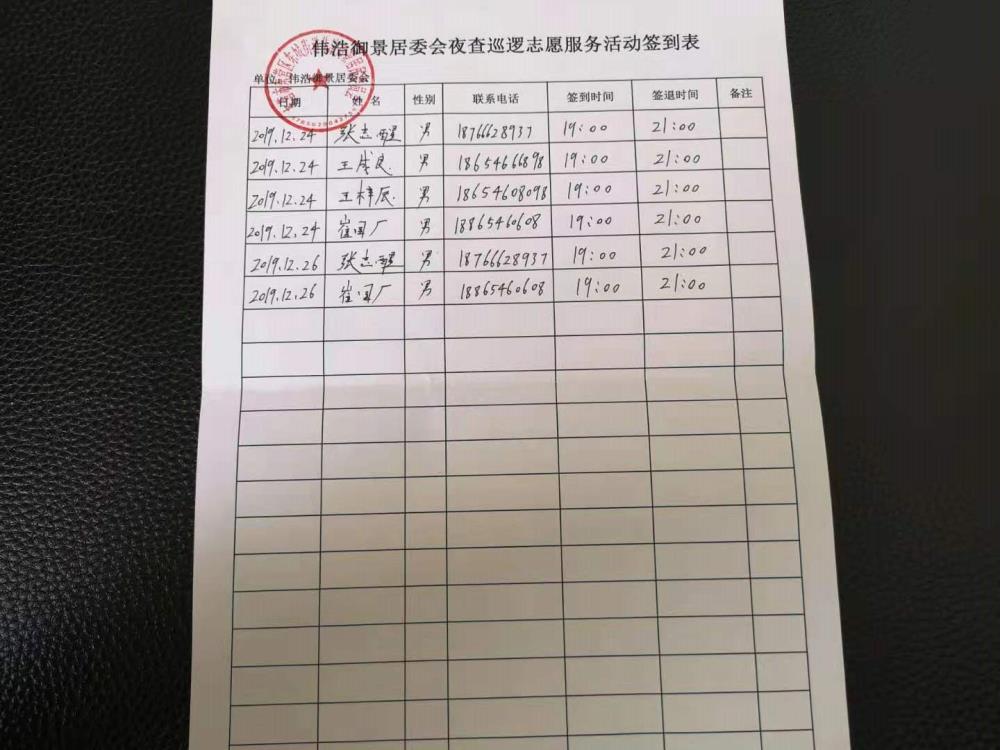 伟浩御景居委会夜查巡逻志愿服务活动签到表
单位：伟浩御景居委会
日期 姓名 性别 联系电话 签到时间 签退时间 备注
2019.12.24 张志醒 男 18766628937 19:00 21:00
2019.12.24 王成良 男 18654666898 19:00 21:00
2019.12.24 王梓辰 男 18654608098 19:00 21:00
2019.12.24 崔国广 男 18865460608 19:00 21:00
2019.12.26 张志醒 男 18766628937 19:00 21:00
2019.12.26 崔国广 男 18865460608 19:00 21:00